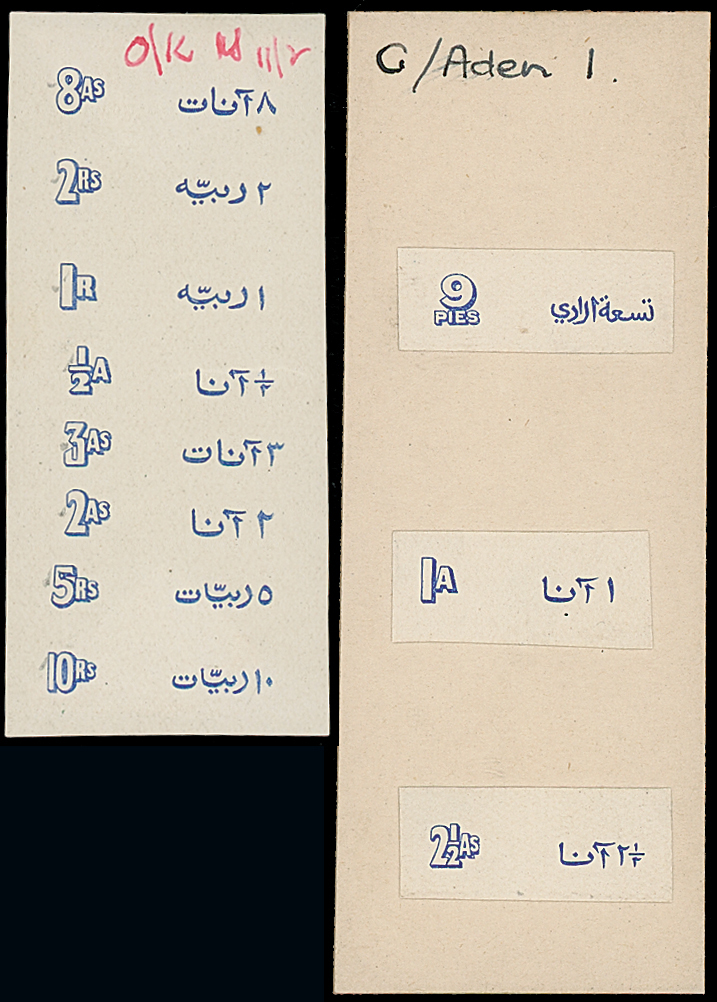 O/K 11/2
8AS ٨ آنات
2RS ٢ ربيّه
1R ١ ربيّه
½A ½ آنا
3AS ٣ آنات
2AS ٢ آنا
5RS ٥ ربيّات
10RS ١٠ ربيّات
G/Aden 1.
9 PIES تسعة ارادي
1A ١ آنا
2½AS ٢½ آنا